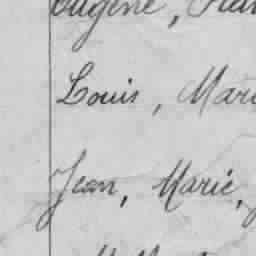 Eugène,
Louis, Mari
Jean, Marie,